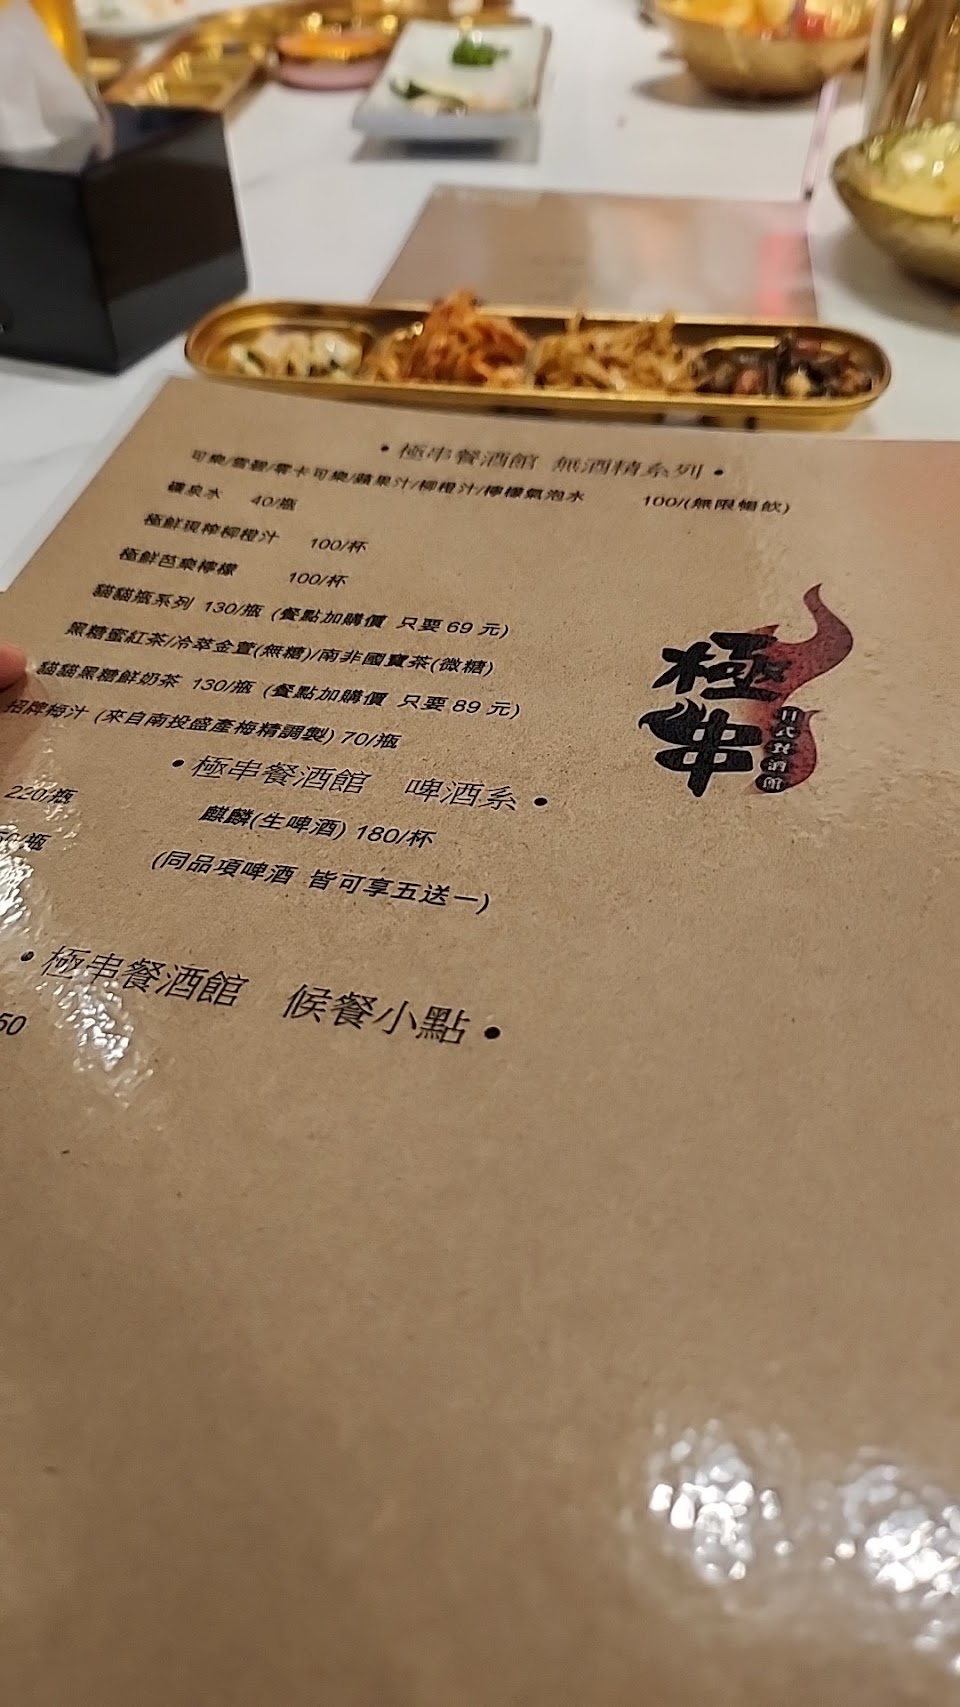 •極串餐酒館 無酒精系列•
可樂/雪碧/零卡可樂/蘋果汁/柳橙汁/檸檬氣泡水 100/(無限暢飲)
礦泉水 40/瓶
極鮮現榨柳橙汁 100/杯
極鮮芭樂檸檬 100/杯
貓貓瓶系列 130/瓶 (餐點加購價 只要 69 元)
黑糖蜜紅茶/冷萃金萱(無糖)/南非國寶茶(微糖)
貓貓黑糖鮮奶茶 130/瓶 (餐點加購價 只要 89 元)
招牌梅汁 (來自南投盛產梅精調製) 70/瓶
•極串餐酒館 啤酒系•
220/瓶 麒麟(生啤酒) 180/杯
0/瓶 (同品項啤酒 皆可享五送一)
•極串餐酒館 候餐小點•
50
極串